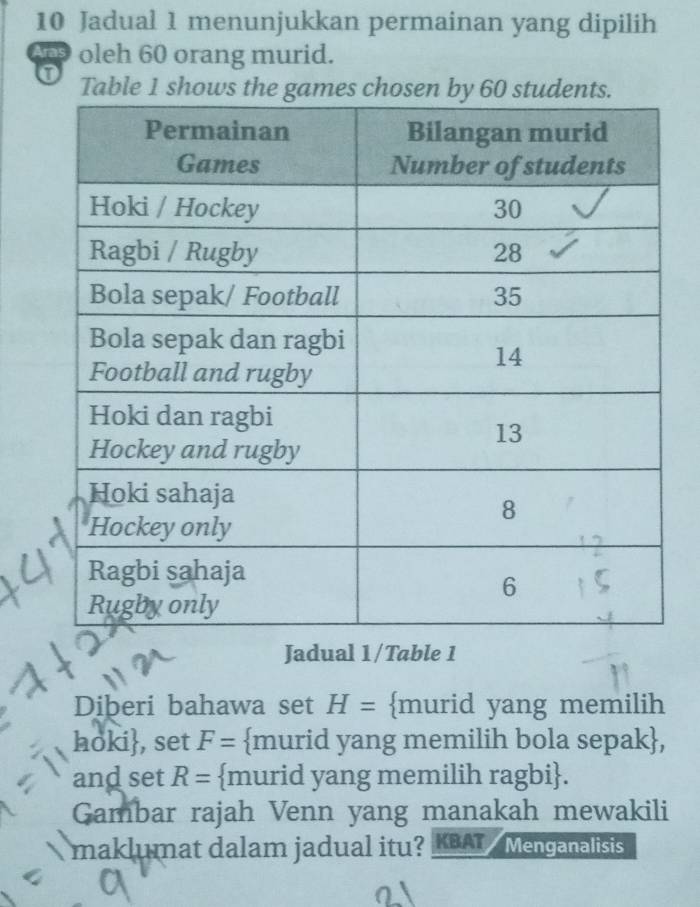 10 Jadual 1 menunjukkan permainan yang dipilih
Aras T oleh 60 orang murid.
Table 1 shows the games chosen by 60 students.
Permainan Bilangan murid
Games Number of students
Hoki / Hockey 30
Ragbi / Rugby 28
Bola sepak/ Football 35
Bola sepak dan ragbi
Football and rugby 14
Hoki dan ragbi
Hockey and rugby 13
Hoki sahaja
Hockey only 8
Ragbi sahaja
Rugby only 6
12
15
4
11
Jadual 1/Table 1
Diberi bahawa set H = {murid yang memilih
hoki}, set F = {murid yang memilih bola sepak},
and set R = {murid yang memilih ragbi}.
Gambar rajah Venn yang manakah mewakili
maklumat dalam jadual itu? KBAT Menganalisis
21